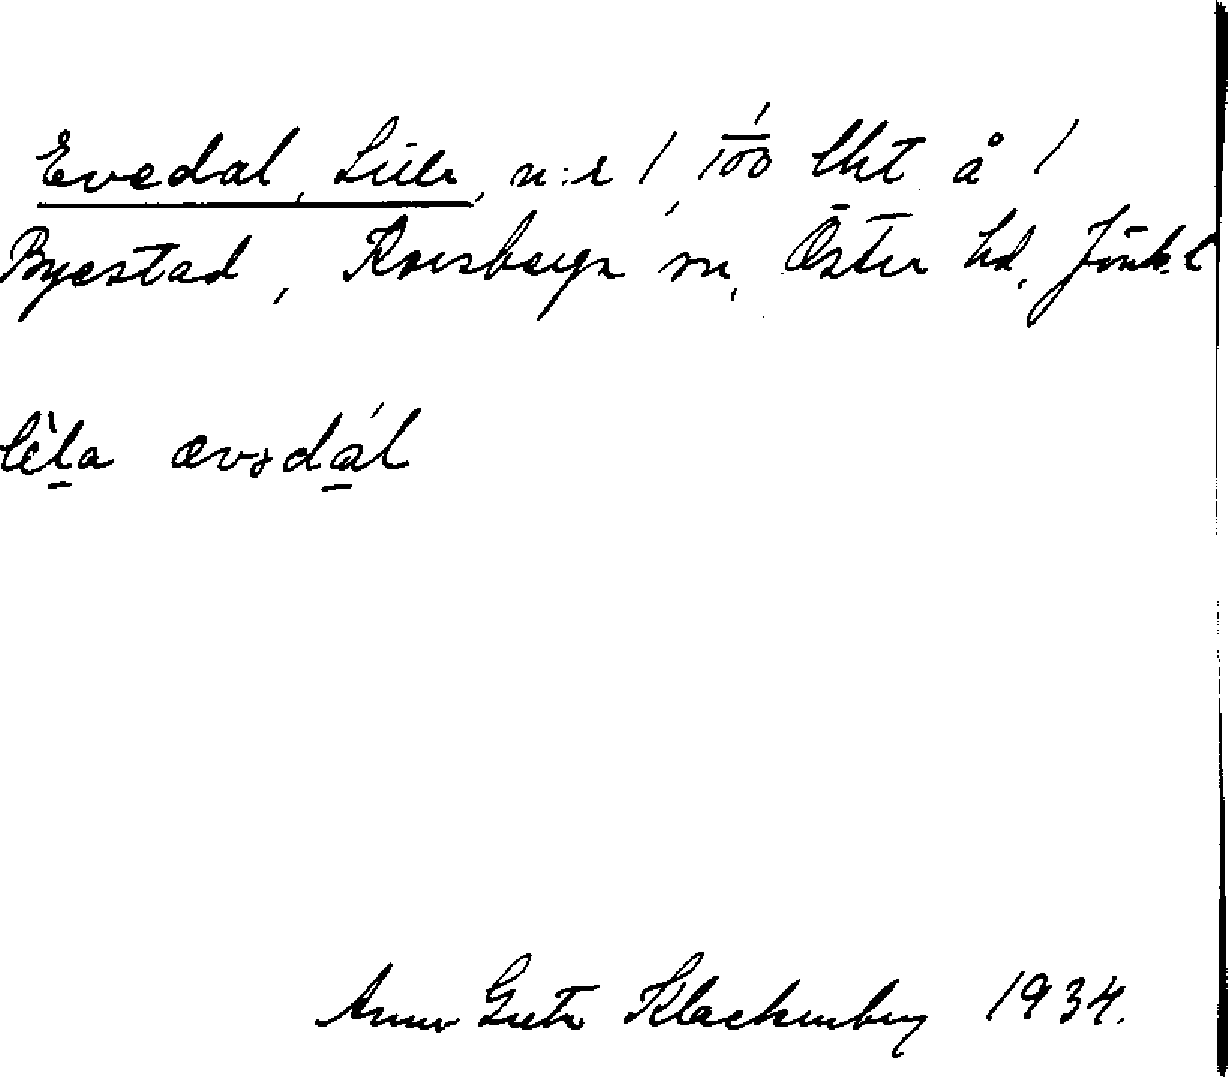 Evedal, Lilla, n:r 1, 1/100 lht å 1
Byestad, Korsberga sn, Östra hd, Jönk. l
lila ævsdál
Anna Greta Klackenberg 1934.